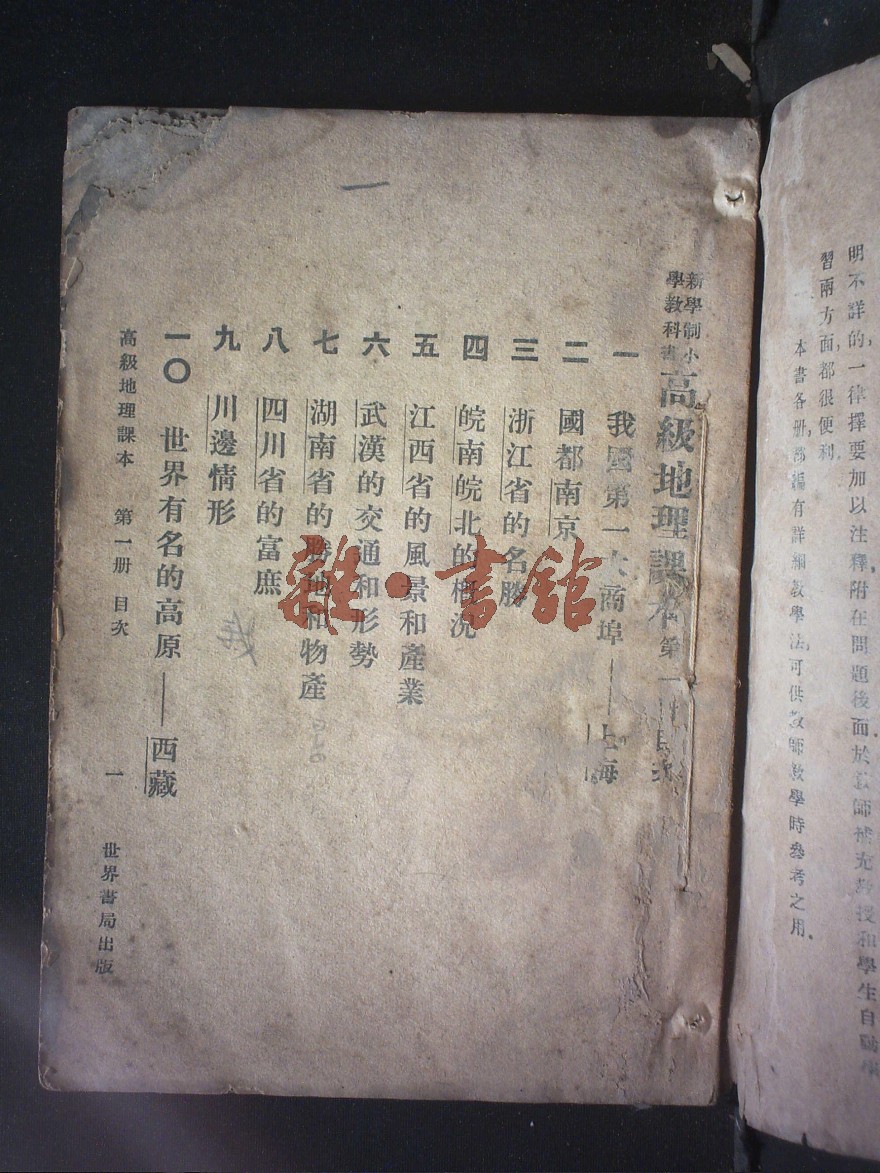 明不詳的,一律擇要加以注釋,附在問題後面;於教師補充教授和學生自動學
習兩方面,都很便利。
本書各册,都編有詳細教學法,可供教師教學時參考之用。
新學制小
學教科書
高級地理課本 第一册目次
一 我國第一大商埠——上海
二 國都南京
三 浙江省的名勝
四 皖南皖北的概況
五 江西省的風景和產業
六 武漢的交通和形勢
七 湖南省的勝地和物產
八 四川省的富庶
九 川邊情形
一〇 世界有名的高原——西藏
高級地理課本 第一册 目次 一 世界書局出版
雜·書館